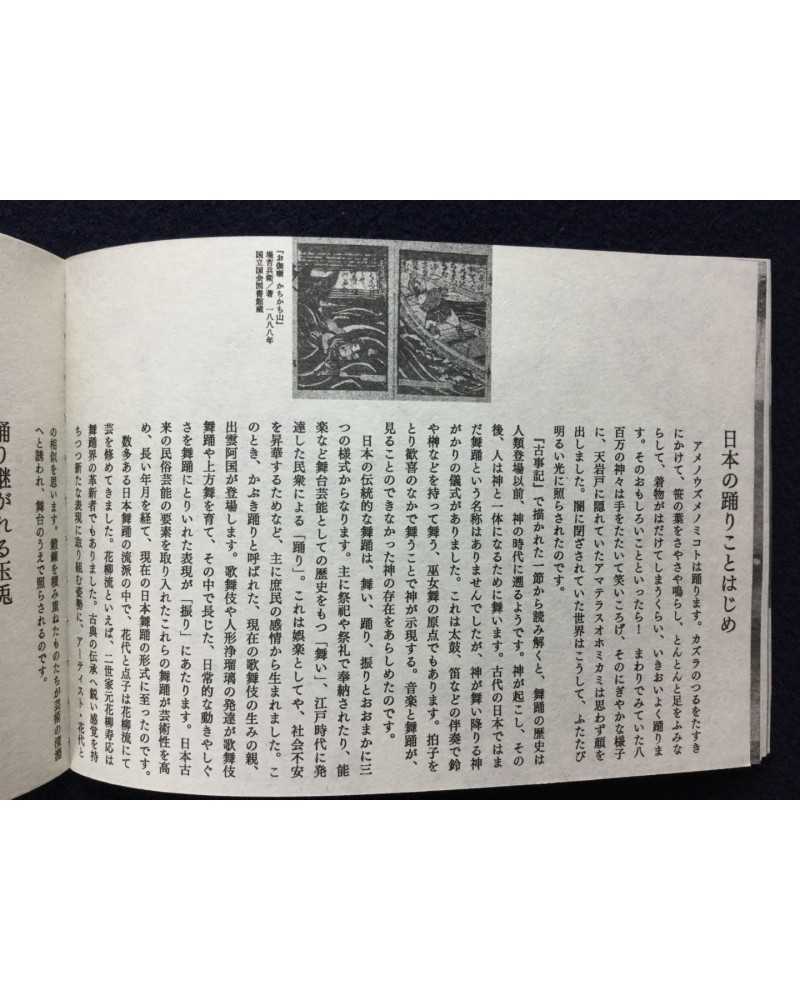 日本の踊りことはじめ
アメノウズメノミコトは踊ります。カズラのつるをたすき
にかけて、笹の葉をさやさや鳴らし、とんとんと足をふみな
らして、着物がはだけてしまうくらい、いきおいよく踊りま
す。そのおもしろいことといったら！　まわりでみていた八
百万の神々は手をたたいて笑いころげ、そのにぎやかな様子
に、天岩戸に隠れていたアマテラスオホミカミは思わず顔を
出しました。闇に閉ざされていた世界はこうして、ふたたび
明るい光に照らされたのです。
『古事記』で描かれた一節から読み解くと、舞踊の歴史は
人類登場以前、神の時代に遡るようです。神が起こし、その
後、人は神と一体になるために舞います。古代の日本ではま
だ舞踊という名称はありませんでしたが、神が舞い降りる神
がかりの儀式がありました。これは太鼓、笛などの伴奏で鈴
や榊などを持って舞う、巫女舞の原点でもあります。拍子を
とり歓喜のなかで舞うことで神が示現する。音楽と舞踊が、
見ることのできなかった神の存在をあらしめたのです。
日本の伝統的な舞踊は、舞い、踊り、振りとおおまかに三
つの様式からなります。主に祭祀や祭礼で奉納されたり、能
楽など舞台芸能としての歴史をもつ「舞い」、江戸時代に発
達した民衆による「踊り」。これは娯楽としてや、社会不安
を昇華するためなど、主に庶民の感情から生まれました。こ
のとき、かぶき踊りと呼ばれた、現在の歌舞伎の生みの親、
出雲阿国が登場します。歌舞伎や人形浄瑠璃の発達が歌舞伎
舞踊や上方舞を育て、その中で長じた、日常的な動きやしぐ
さを舞踊にとりいれた表現が「振り」にあたります。日本古
来の民俗芸能の要素を取り入れたこれらの舞踊が芸術性を高
め、長い年月を経て、現在の日本舞踊の形式に至ったのです。
数多ある日本舞踊の流派の中で、花代と点子は花柳流にて
芸を修めてきました。花柳流といえば、二世家元花柳寿応は
舞踊界の革新者でもありました。古典の伝承へ鋭い感覚を持
ちつつ新たな表現に取り組む姿勢に、アーティスト・花代と
の相似を思います。鍛錬を積み重ねたものたちが芸術の
へと誘われ、舞台のうえで照らされるのです。
『お伽噺 かちかち山』
堤吉兵衛／著　一八八八年
国立国会図書館蔵
踊り継がれる玉兎